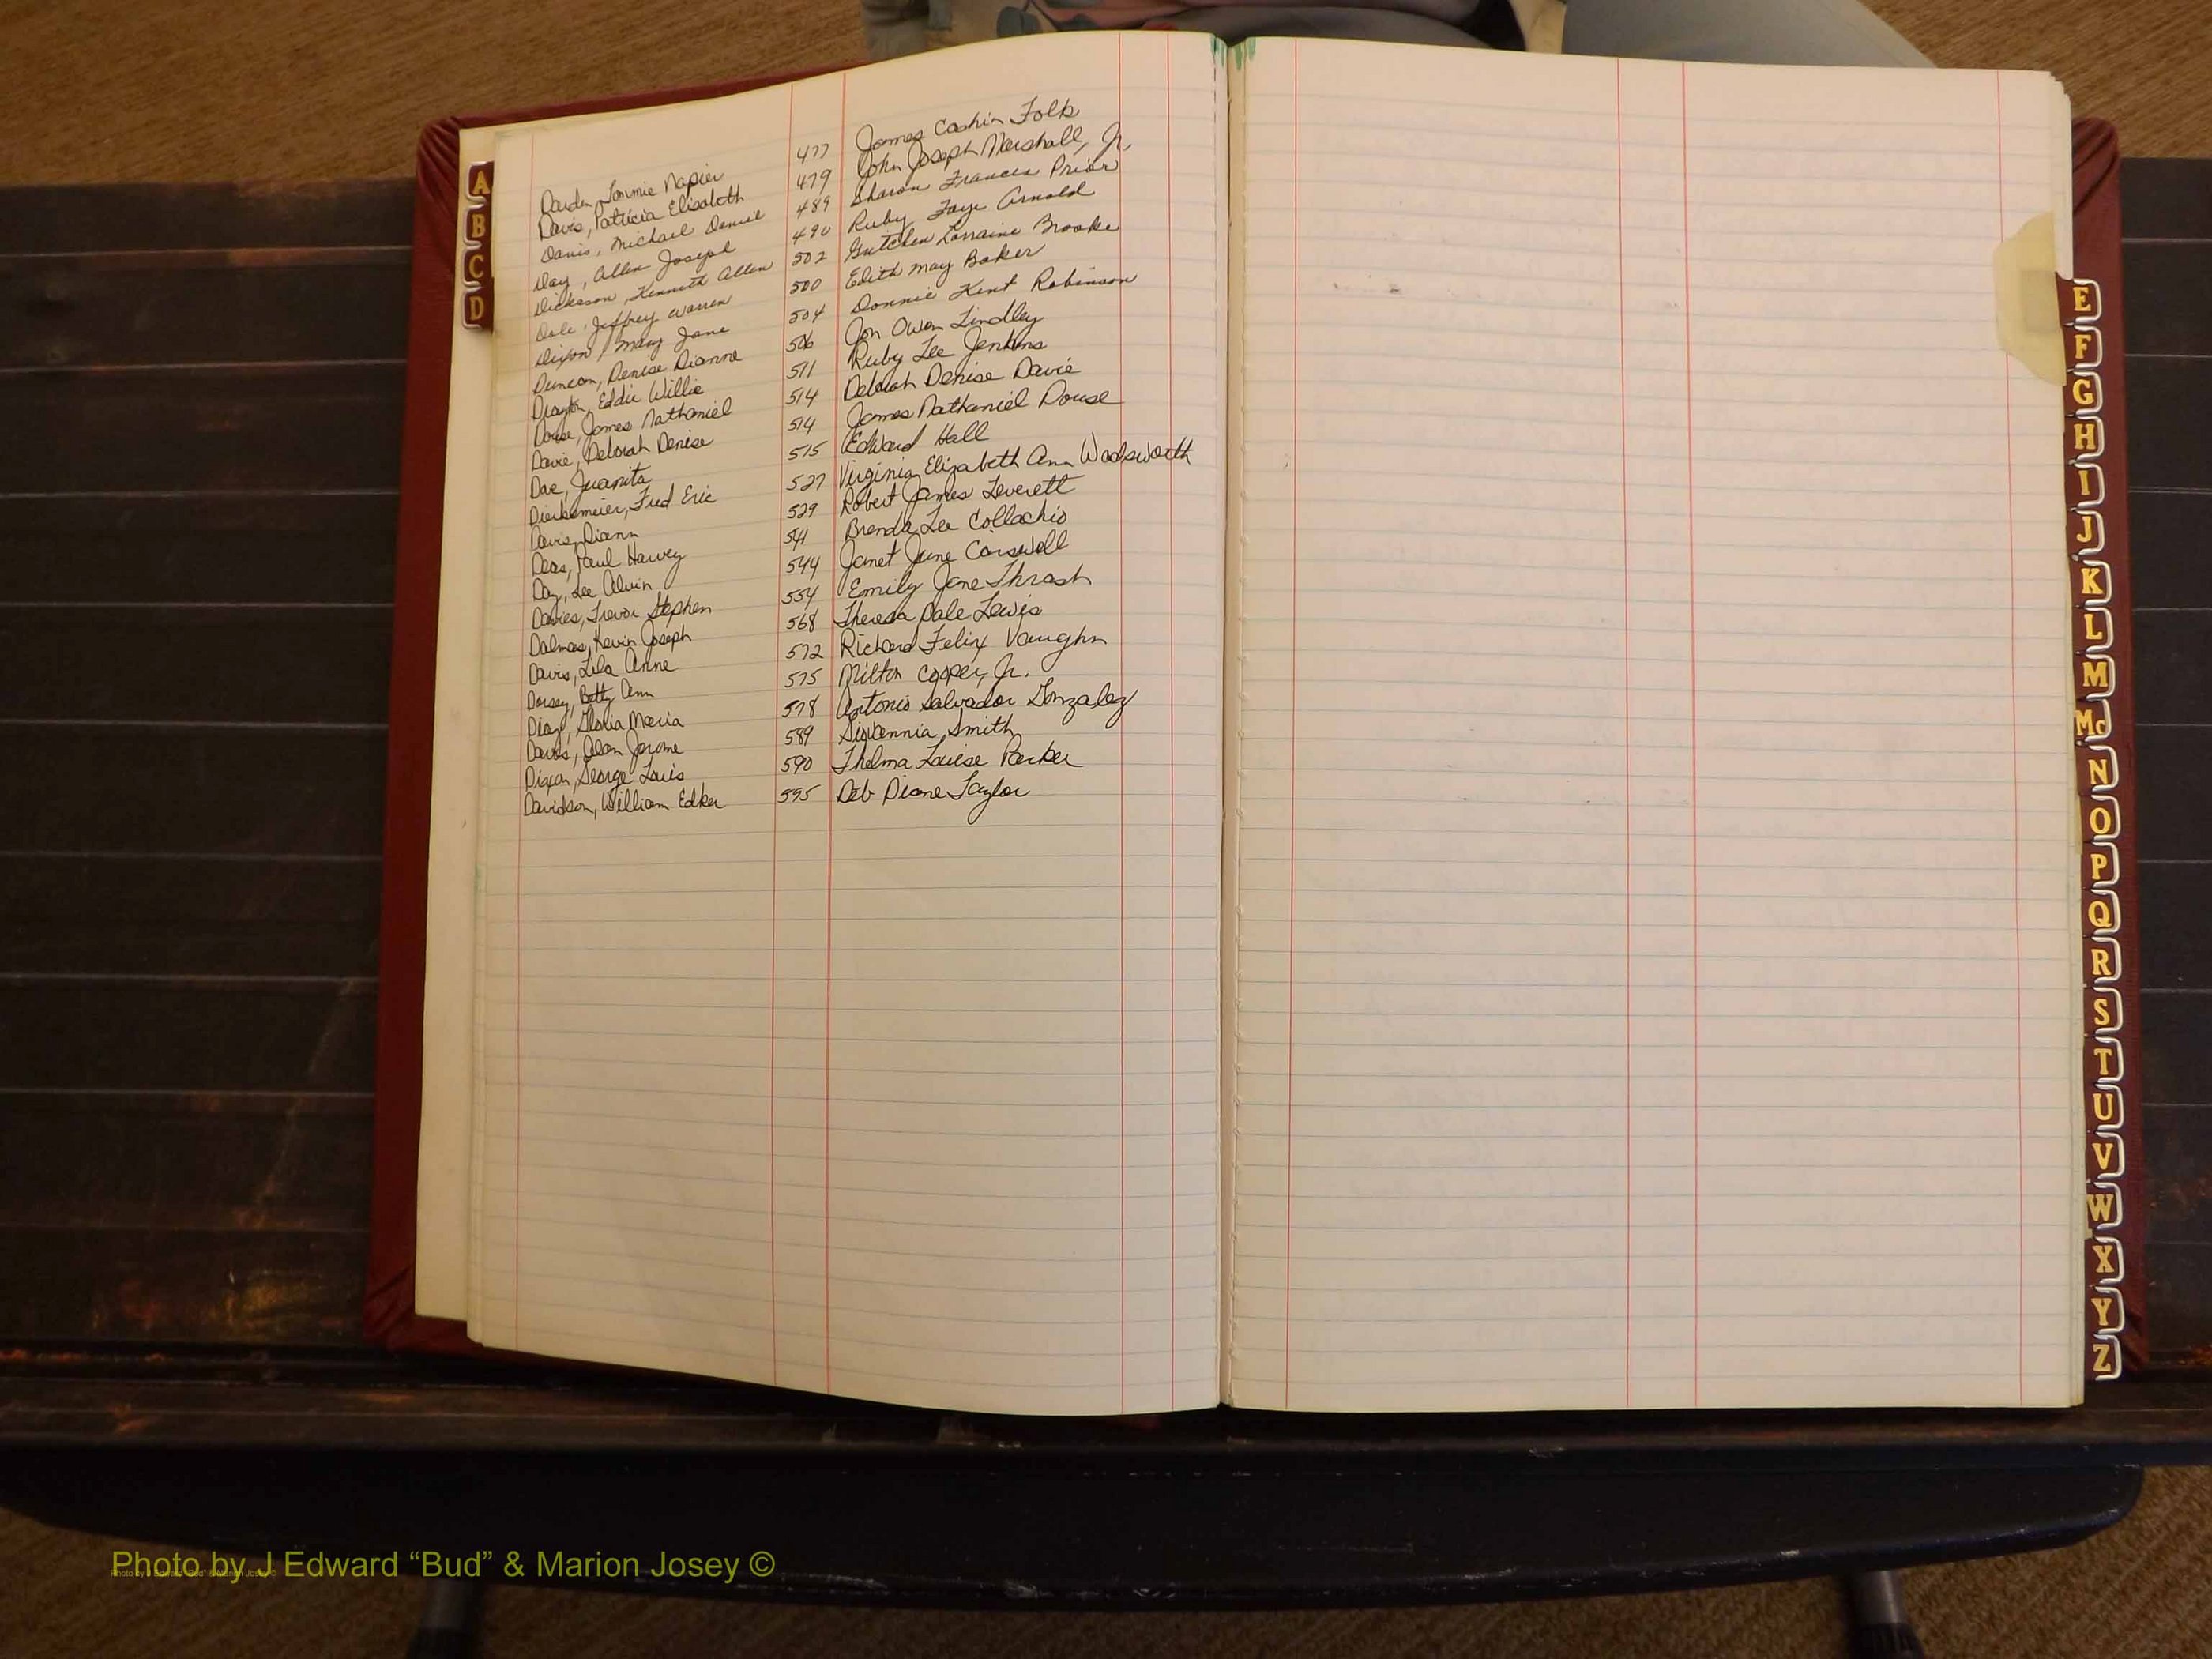 Darden, Tommie Napier 477 James Cashin Folk
Davis, Patricia Elisabeth 479 John Joseph Marshall, Jr.
Davis, Michael Daniel 489 Sharon Frances Prior
Day, Allen Joseph 490 Ruby Faye Arnold
Dickeson, Kenneth Allen 502 Gretchen Lorraine Brooke
Dole, Jeffrey Warren 500 Edith May Baker
Dixon, Mary Jane 504 Donnie Kent Robinson
Duncan, Denise Dianne 506 Jon Owen Lindley
Drayton, Eddie Willie 511 Ruby Lee Jenkins
Douse, James Nathaniel 514 Deborah Denise Davie
Davie, Deborah Denise 514 James Nathaniel Douse
Doe, Juanita 515 Edward Hall
Dierksmeier, Fred Eric 527 Virginia Elizabeth Ann Wadsworth
Davis, Diann 529 Robert James Leverett
Deas, Paul Harvey 541 Brenda Lee Collachio
Day, Lee Alvin 544 Janet June Carswell
Davies, Trevor Stephen 554 Emily Jane Thrash
Dalmas, Kevin Joseph 568 Theresa Dale Lewis
Davis, Lila Anne 572 Richard Felix Vaughn
Dorsey, Betty Ann 575 Milton Cooper, Jr.
Diaz, Gloria Maria 578 Antonio Salvador Gonzalez
Davis, Alan Jerome 589 Smith
Dixon, George Louis 590 Thelma Louise Parker
Davidson, William Edker 595 Deb Diane Taylor
A
B
C
D
E
F
G
H
I
J
K
L
M
Mc
N
O
P
Q
R
S
T
U
V
W
X
Y
Z
Photo by J Edward “Bud” & Marion Josey ©
Photo by J Edward “Bud” & Marion Josey ©